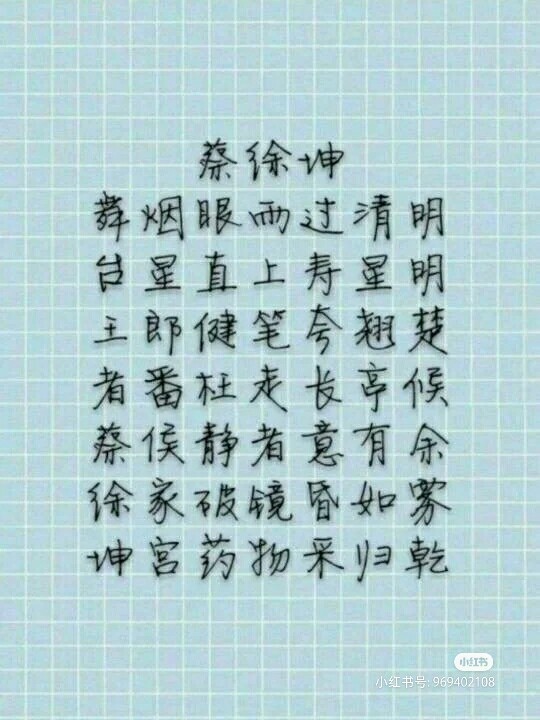 蔡徐坤
舞烟眼雨过清明
台星直上寿星明
王郎健笔夸翘楚
者番枉走长亭候
蔡侯静者意有余
徐家破镜昏如雾
坤宫药物采归乾
小红书
小红书号: 969402108